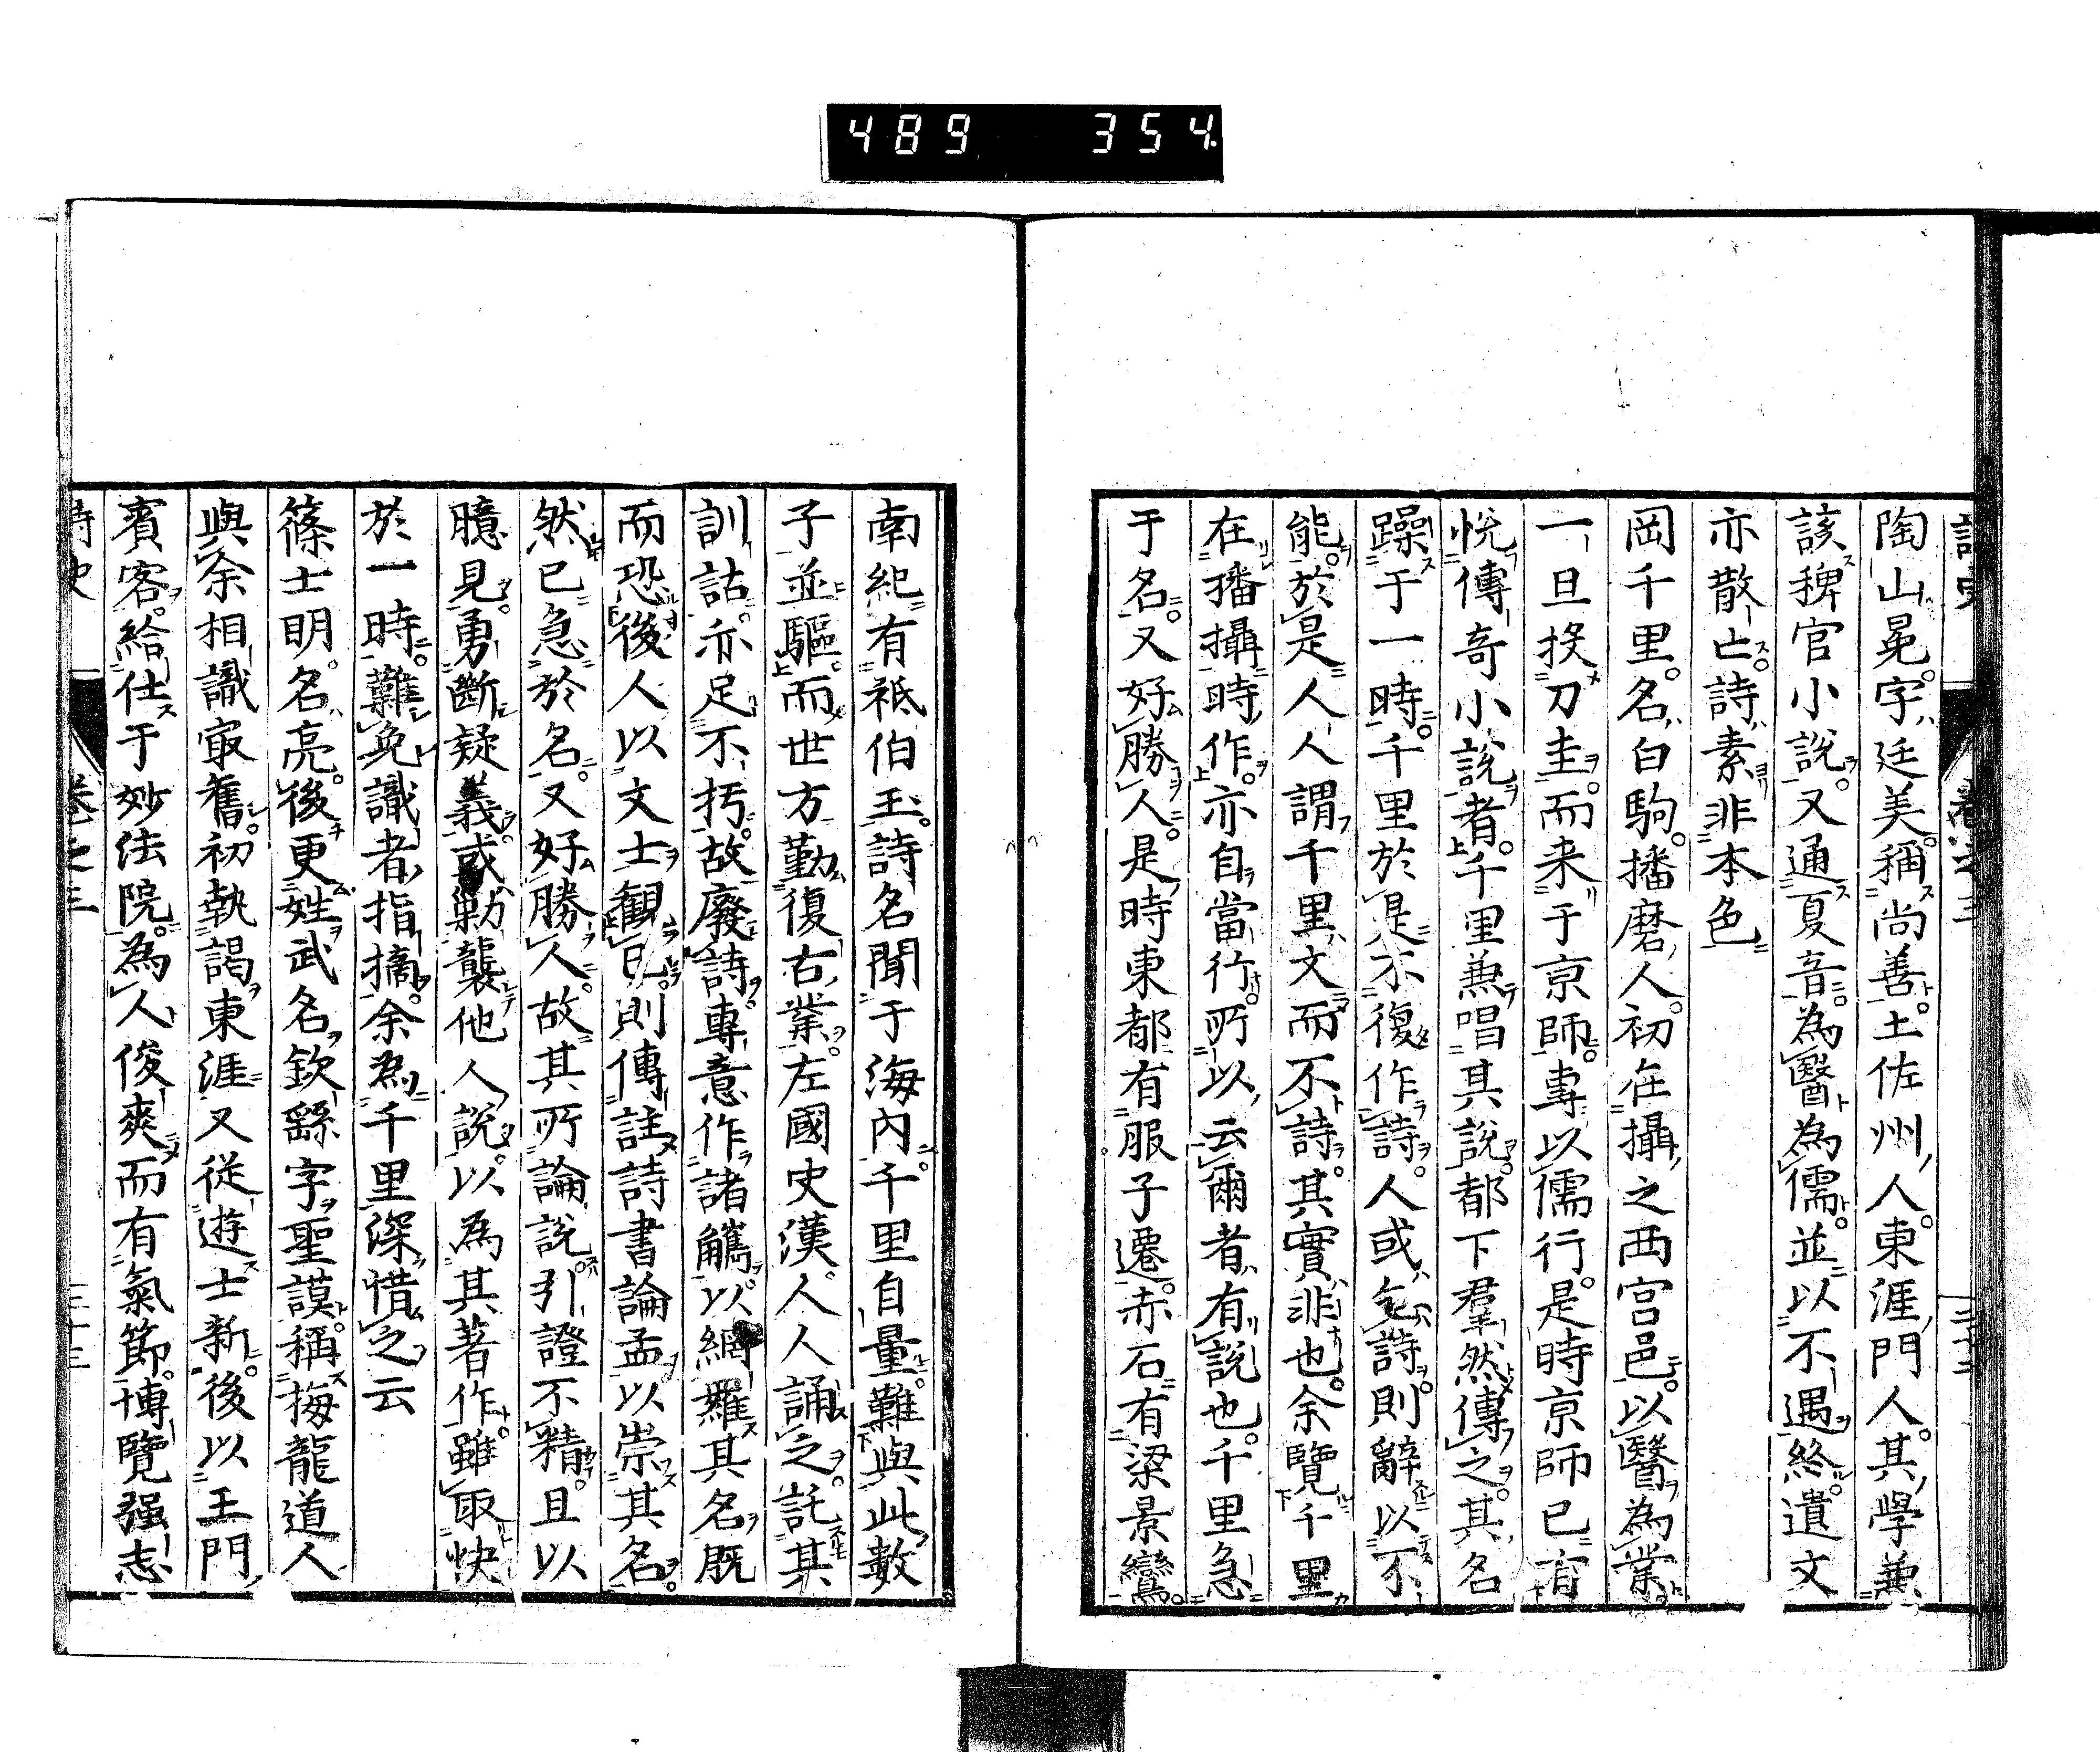 489 354
陶山晃字廷美稱尚善土佐州人東涯門人其學兼
該稗官小說又通夏音為醫為儒並以不遇終遺文
亦散亡詩素非本色
岡千里名白駒播磨人初在攝之西宮邑以醫為業
一旦投刀圭而来于京師專以儒行是時京師已有
悅傳奇小說者千里兼唱其說都下羣然傳之其名
躁于一時千里於是不復作詩人或乞詩則辭以不
能於是人人謂千里文而不詩其實非也余覽千里
在播攝時作亦自當行所以云爾者有說也千里急
于名又好勝人是時東都有服子遷赤石有梁景鸞
南紀有祗伯玉詩名聞于海內千里自量難與此數
子並驅而世方勤復古業左國史漢人人誦之託其
訓詁亦足不朽故廢詩專意作諸觿以網羅其名既
而恐後人以文士観已則傳註詩書論孟以崇其名
然已急於名又好勝人故其所論說引證不精且以
臆見勇斷疑義或勦襲他人說以為其著作雖取快
於一時難免識者指摘余為千里深惜之云
篠士明名亮後更姓武名欽繇字聖謨稱梅龍道人
與余相識㝡舊初執謁東涯又從遊士新後以王門
賓客給仕于妙法院為人俊爽而有氣節博覽强志